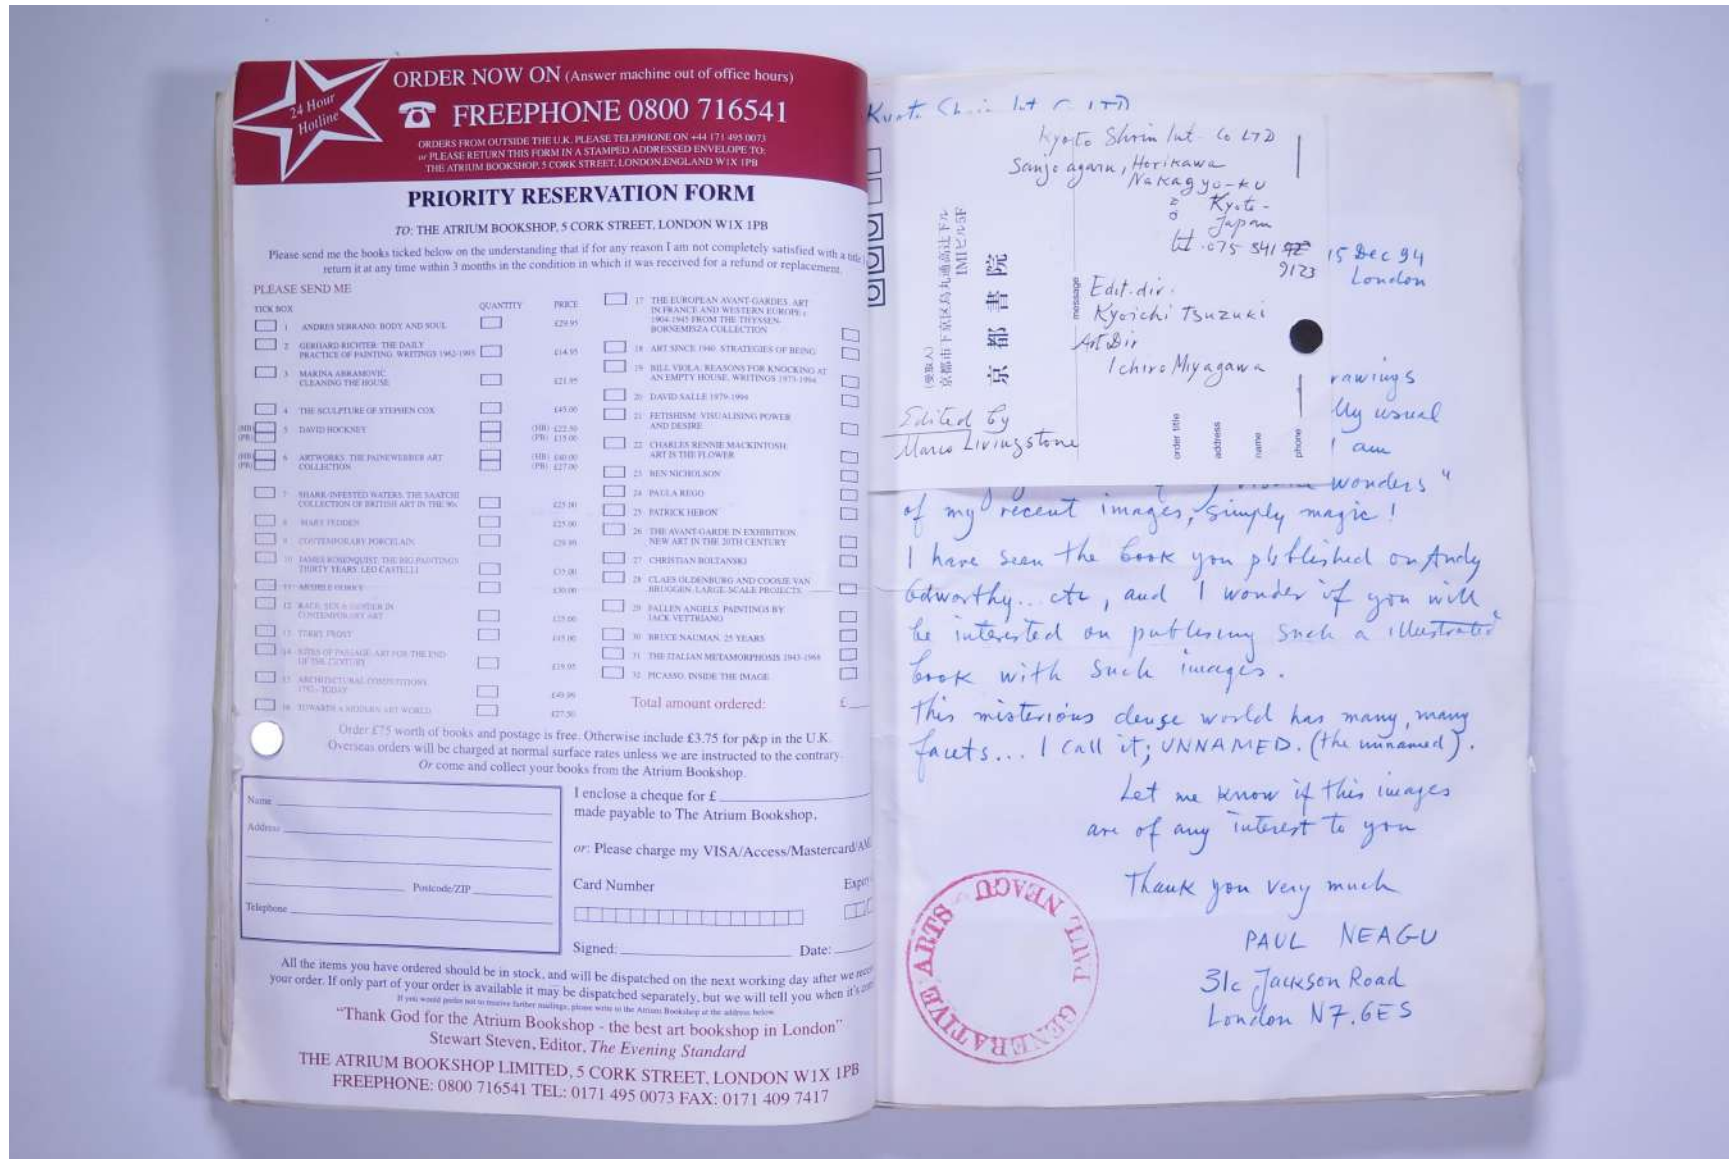 24 Hour
Hotline
ORDER NOW ON (Answer machine out of office hours)
FREEPHONE 0800 716541
ORDERS FROM OUTSIDE THE U.K. PLEASE TELEPHONE ON +44 171 495 0073
or PLEASE RETURN THIS FORM IN A STAMPED ADDRESSED ENVELOPE TO:
THE ATRIUM BOOKSHOP, 5 CORK STREET, LONDON, ENGLAND W1X 1PB
PRIORITY RESERVATION FORM
TO: THE ATRIUM BOOKSHOP, 5 CORK STREET, LONDON W1X 1PB
Please send me the books ticked below on the understanding that if for any reason I am not completely satisfied with a title I
return it at any time within 3 months in the condition in which it was received for a refund or replacement.
PLEASE SEND ME
TICK BOX QUANTITY PRICE
1 ANDRES SERRANO: BODY AND SOUL £29.95
2 GERHARD RICHTER: THE DAILY
PRACTICE OF PAINTING. WRITINGS 1962-1993 £14.95
3 MARINA ABRAMOVIC
CLEANING THE HOUSE £21.95
4 THE SCULPTURE OF STEPHEN COX £45.00
(HB) 5 DAVID HOCKNEY (HB) £22.50
(PB) (PB) £15.00
(HB) 6 ARTWORKS: THE PAINEWEBBER ART (HB) £40.00
(PB) COLLECTION (PB) £27.00
7 SHARK INFESTED WATERS: THE SAATCHI
COLLECTION OF BRITISH ART IN THE 90s £25.00
8 MARY FEDDEN £25.00
9 CONTEMPORARY PORCELAIN £29.95
10 JAMES ROSENQUIST: THE BIG PAINTINGS
THIRTY YEARS. LEO CASTELLI £35.00
11 ARSHILE GORKY £30.00
12 RACE, SEX & GENDER IN
CONTEMPORARY ART £25.00
13 TERRY FROST £45.00
14 RITES OF PASSAGE: ART FOR THE END
OF THE CENTURY £19.95
15 ARCHITECTURAL COMPETITIONS
1792 - TODAY £49.99
16 TOWARDS A MODERN ART WORLD £27.50
17 THE EUROPEAN AVANT-GARDES: ART
IN FRANCE AND WESTERN EUROPE c
1904-1945 FROM THE THYSSEN-
BORNEMISZA COLLECTION
18 ART SINCE 1940: STRATEGIES OF BEING
19 BILL VIOLA: REASONS FOR KNOCKING AT
AN EMPTY HOUSE, WRITINGS 1973-1994
20 DAVID SALLE 1979-1994
21 FETISHISM: VISUALISING POWER
AND DESIRE
22 CHARLES RENNIE MACKINTOSH:
ART IS THE FLOWER
23 BEN NICHOLSON
24 PAULA REGO
25 PATRICK HERON
26 THE AVANT-GARDE IN EXHIBITION
NEW ART IN THE 20TH CENTURY
27 CHRISTIAN BOLTANSKI
28 CLAES OLDENBURG AND COOSJE VAN
BRUGGEN: LARGE-SCALE PROJECTS
29 FALLEN ANGELS: PAINTINGS BY
JACK VETTRIANO
30 BRUCE NAUMAN: 25 YEARS
31 THE ITALIAN METAMORPHOSIS 1943-1968
32 PICASSO: INSIDE THE IMAGE
Total amount ordered: £
Order £75 worth of books and postage is free. Otherwise include £3.75 for p&p in the U.K.
Overseas orders will be charged at normal surface rates unless we are instructed to the contrary.
Or come and collect your books from the Atrium Bookshop.
Name
Address
Postcode/ZIP
Telephone
I enclose a cheque for £
made payable to The Atrium Bookshop,
or: Please charge my VISA/Access/Mastercard/AM
Card Number Expiry
Signed: Date:
All the items you have ordered should be in stock, and will be dispatched on the next working day after we rece
your order. If only part of your order is available it may be dispatched separately, but we will tell you when it's
If you would prefer not to receive further mailings, please write to the Atrium Bookshop at the address below
"Thank God for the Atrium Bookshop - the best art bookshop in London"
Stewart Steven, Editor, The Evening Standard
THE ATRIUM BOOKSHOP LIMITED, 5 CORK STREET, LONDON W1X 1PB
FREEPHONE: 0800 716541 TEL: 0171 495 0073 FAX: 0171 409 7417
Kyoto Shrin Int Co LTD
Sanjo agaru, Horikawa
Nakagyo-ku
Kyoto-
Japan
tel. 075 341
9123
Edit. dir.
Kyoichi Tsuzuki
Art Dir
Ichiro Miyagawa
Edited by
Marco Livingstone
(受取人)
京都市下京区烏丸通高辻下ル
IMIビル5F
京都書院
message
order title
address
name
phone
15 Dec 94
London
rawings
My usual
I am
wonders"
of my recent images, simply magic!
I have seen the book you pbblished on Andy
Gdworthy... etc, and I wonder if you will
be interested on publising such a illustrated
book with such images.
This misterious dense world has many, many
facets... I call it; UNNAMED. (the unnamed).
Let me know if this images
are of any interest to you
Thank you very much
PAUL NEAGU
31c Jackson Road
London N7.6ES
PAUL NEAGU GENERATIVE ARTS